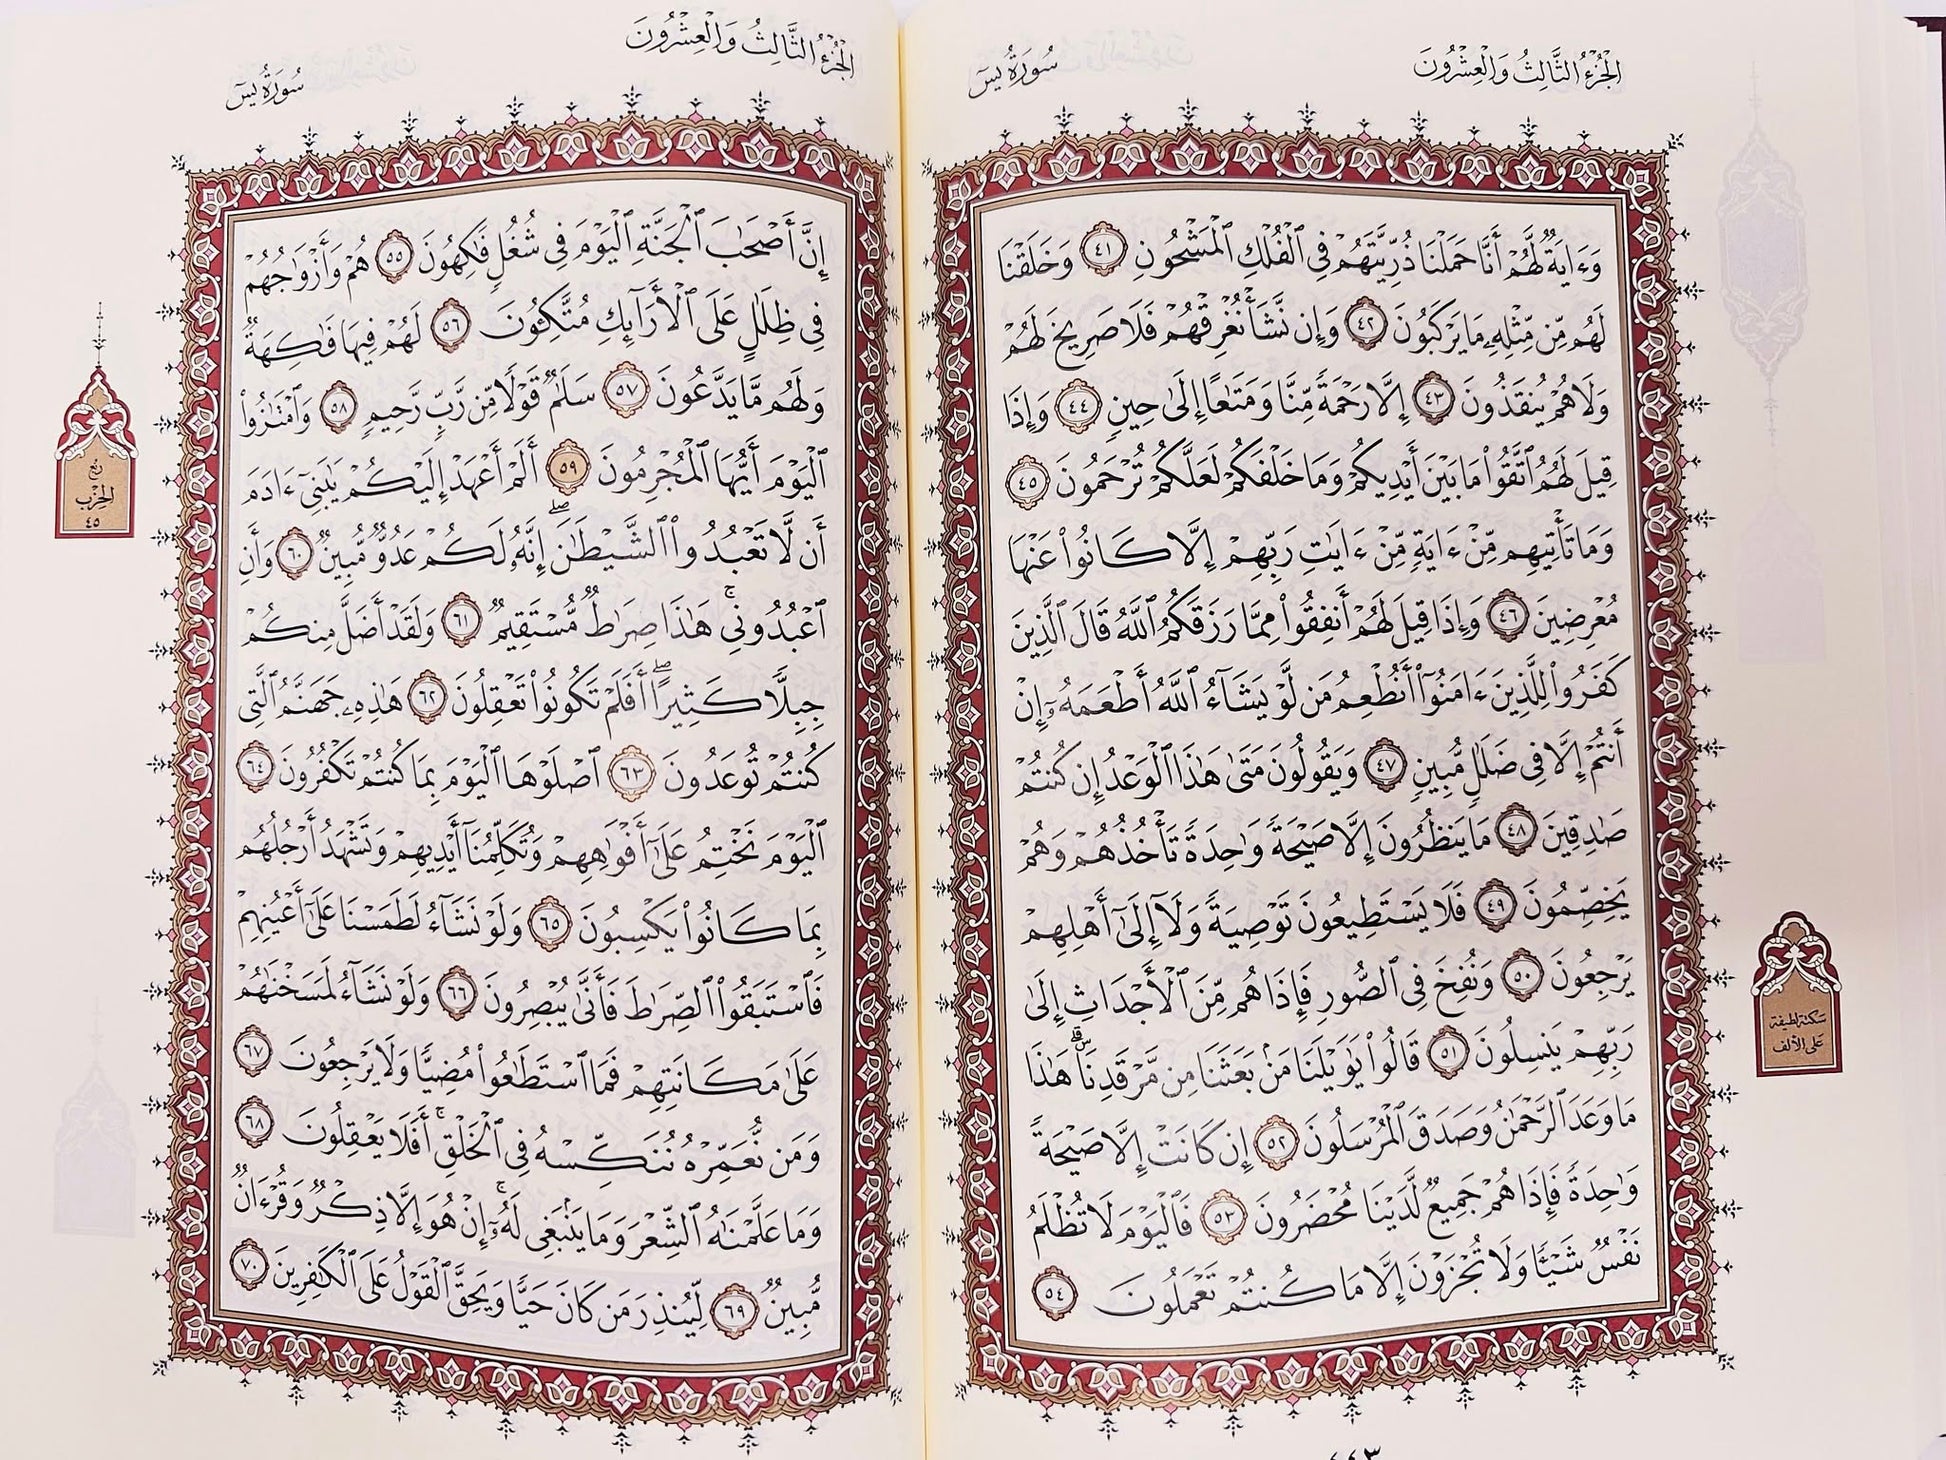 الجُزْءُ الثَّالِثُ وَالْعِشْرُونَ
سُورَةُ يسٓ
وَءَايَةٌ لَّهُمْ أَنَّا حَمَلْنَا ذُرِّيَّتَهُمْ فِي ٱلْفُلْكِ ٱلْمَشْحُونِ ٤١ وَخَلَقْنَا
لَهُم مِّن مِّثْلِهِۦ مَا يَرْكَبُونَ ٤٢ وَإِن نَّشَأْ نُغْرِقْهُمْ فَلَا صَرِيخَ لَهُمْ
وَلَا هُمْ يُنقَذُونَ ٤٣ إِلَّا رَحْمَةً مِّنَّا وَمَتَٰعًا إِلَىٰ حِينٍ ٤٤ وَإِذَا
قِيلَ لَهُمُ ٱتَّقُوا۟ مَا بَيْنَ أَيْدِيكُمْ وَمَا خَلْفَكُمْ لَعَلَّكُمْ تُرْحَمُونَ ٤٥
وَمَا تَأْتِيهِم مِّنْ ءَايَةٍ مِّنْ ءَايَٰتِ رَبِّهِمْ إِلَّا كَانُوا۟ عَنْهَا
مُعْرِضِينَ ٤٦ وَإِذَا قِيلَ لَهُمْ أَنفِقُوا۟ مِمَّا رَزَقَكُمُ ٱللَّهُ قَالَ ٱلَّذِينَ
كَفَرُوا۟ لِلَّذِينَ ءَامَنُوٓا۟ أَنُطْعِمُ مَن لَّوْ يَشَآءُ ٱللَّهُ أَطْعَمَهُۥٓ إِنْ
أَنتُمْ إِلَّا فِي ضَلَٰلٍ مُّبِينٍ ٤٧ وَيَقُولُونَ مَتَىٰ هَٰذَا ٱلْوَعْدُ إِن كُنتُمْ
صَٰدِقِينَ ٤٨ مَا يَنظُرُونَ إِلَّا صَيْحَةً وَٰحِدَةً تَأْخُذُهُمْ وَهُمْ
يَخِصِّمُونَ ٤٩ فَلَا يَسْتَطِيعُونَ تَوْصِيَةً وَلَآ إِلَىٰٓ أَهْلِهِمْ
يَرْجِعُونَ ٥٠ وَنُفِخَ فِي ٱلصُّورِ فَإِذَا هُم مِّنَ ٱلْأَجْدَاثِ إِلَىٰ
رَبِّهِمْ يَنسِلُونَ ٥١ قَالُوا۟ يَٰوَيْلَنَا مَنۢ بَعَثَنَا مِن مَّرْقَدِنَا ۜ ۗ هَٰذَا
مَا وَعَدَ ٱلرَّحْمَٰنُ وَصَدَقَ ٱلْمُرْسَلُونَ ٥٢ إِن كَانَتْ إِلَّا صَيْحَةً
وَٰحِدَةً فَإِذَا هُمْ جَمِيعٌ لَّدَيْنَا مُحْضَرُونَ ٥٣ فَٱلْيَوْمَ لَا تُظْلَمُ
نَفْسٌ شَيْـًٔا وَلَا تُجْزَوْنَ إِلَّا مَا كُنتُمْ تَعْمَلُونَ ٥٤
سكتة لطيفة
على الألف
٤٤٣
الجُزْءُ الثَّالِثُ وَالْعِشْرُونَ
سُورَةُ يسٓ
إِنَّ أَصْحَٰبَ ٱلْجَنَّةِ ٱلْيَوْمَ فِي شُغُلٍ فَٰكِهُونَ ٥٥ هُمْ وَأَزْوَٰجُهُمْ
فِي ظِلَٰلٍ عَلَى ٱلْأَرَآئِكِ مُتَّكِـُٔونَ ٥٦ لَهُمْ فِيهَا فَٰكِهَةٌ
وَلَهُم مَّا يَدَّعُونَ ٥٧ سَلَٰمٌ قَوْلًا مِّن رَّبٍّ رَّحِيمٍ ٥٨ وَٱمْتَٰزُوا۟
ٱلْيَوْمَ أَيُّهَا ٱلْمُجْرِمُونَ ٥٩ أَلَمْ أَعْهَدْ إِلَيْكُمْ يَٰبَنِيٓ ءَادَمَ
أَن لَّا تَعْبُدُوا۟ ٱلشَّيْطَٰنَ ۖ إِنَّهُۥ لَكُمْ عَدُوٌّ مُّبِينٌ ٦٠ وَأَنِ
ٱعْبُدُونِي ۚ هَٰذَا صِرَٰطٌ مُّسْتَقِيمٌ ٦١ وَلَقَدْ أَضَلَّ مِنكُمْ
جِبِلًّا كَثِيرًا ۖ أَفَلَمْ تَكُونُوا۟ تَعْقِلُونَ ٦٢ هَٰذِهِۦ جَهَنَّمُ ٱلَّتِي
كُنتُمْ تُوعَدُونَ ٦٣ ٱصْلَوْهَا ٱلْيَوْمَ بِمَا كُنتُمْ تَكْفُرُونَ ٦٤
ٱلْيَوْمَ نَخْتِمُ عَلَىٰٓ أَفْوَٰهِهِمْ وَتُكَلِّمُنَآ أَيْدِيهِمْ وَتَشْهَدُ أَرْجُلُهُم
بِمَا كَانُوا۟ يَكْسِبُونَ ٦٥ وَلَوْ نَشَآءُ لَطَمَسْنَا عَلَىٰٓ أَعْيُنِهِمْ
فَٱسْتَبَقُوا۟ ٱلصِّرَٰطَ فَأَنَّىٰ يُبْصِرُونَ ٦٦ وَلَوْ نَشَآءُ لَمَسَخْنَٰهُمْ
عَلَىٰ مَكَانَتِهِمْ فَمَا ٱسْتَطَٰعُوا۟ مُضِيًّا وَلَا يَرْجِعُونَ ٦٧
وَمَن نُّعَمِّرْهُ نُنَكِّسْهُ فِي ٱلْخَلْقِ ۚ أَفَلَا يَعْقِلُونَ ٦٨
وَمَا عَلَّمْنَٰهُ ٱلشِّعْرَ وَمَا يَنۢبَغِي لَهُۥٓ ۚ إِنْ هُوَ إِلَّا ذِكْرٌ وَقُرْءَانٌ
مُّبِينٌ ٦٩ لِّيُنذِرَ مَن كَانَ حَيًّا وَيَحِقَّ ٱلْقَوْلُ عَلَى ٱلْكَٰفِرِينَ ٧٠
ربع
الحزب
٤٥